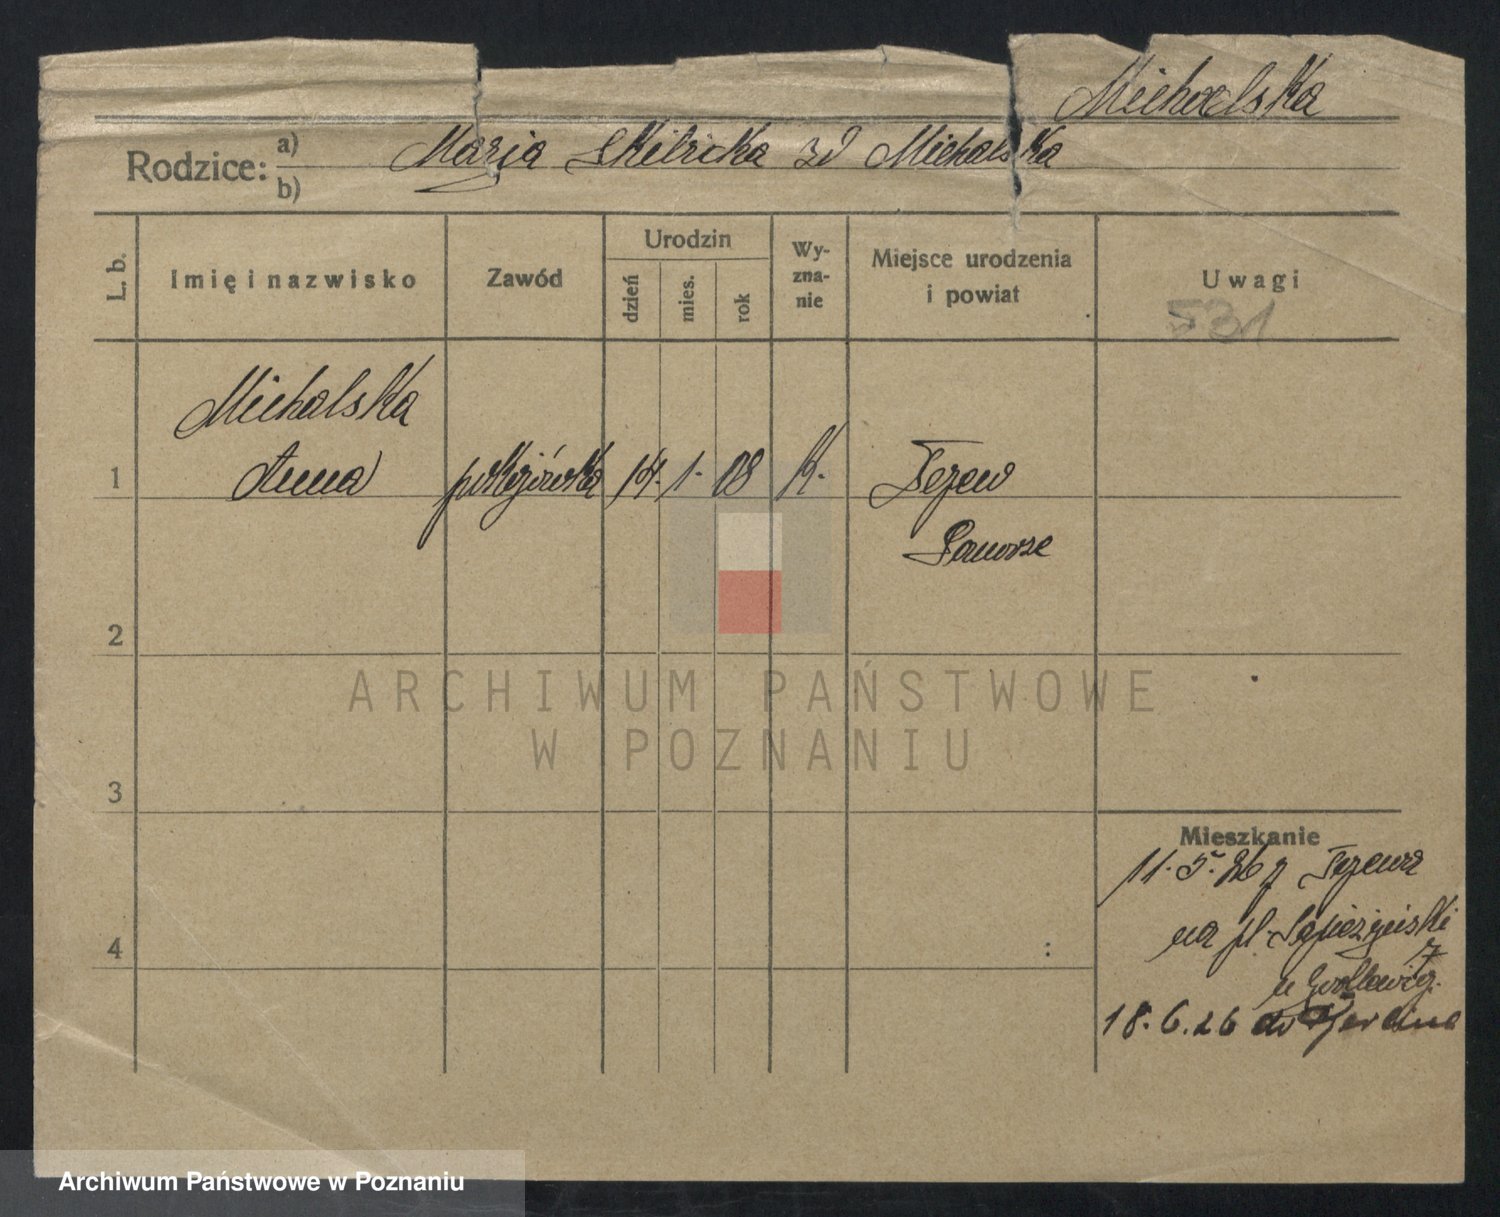 Michalska
Rodzice: a) Marja zd Michalska
b)
L. b. Imię i nazwisko Zawód Urodzin dzień mies. rok Wyznanie Miejsce urodzenia i powiat Uwagi
531
Michalska
1 Anna pokojówka 14. 1. 08 K. Tczew
Pomorze
2
ARCHIWUM PAŃSTWOWE
W POZNANIU
3
Mieszkanie
11. 5. 26 z Tczewa
na pl. Sapieżyński
7
4
u
18. 6. 26 do
Archiwum Państwowe w Poznaniu